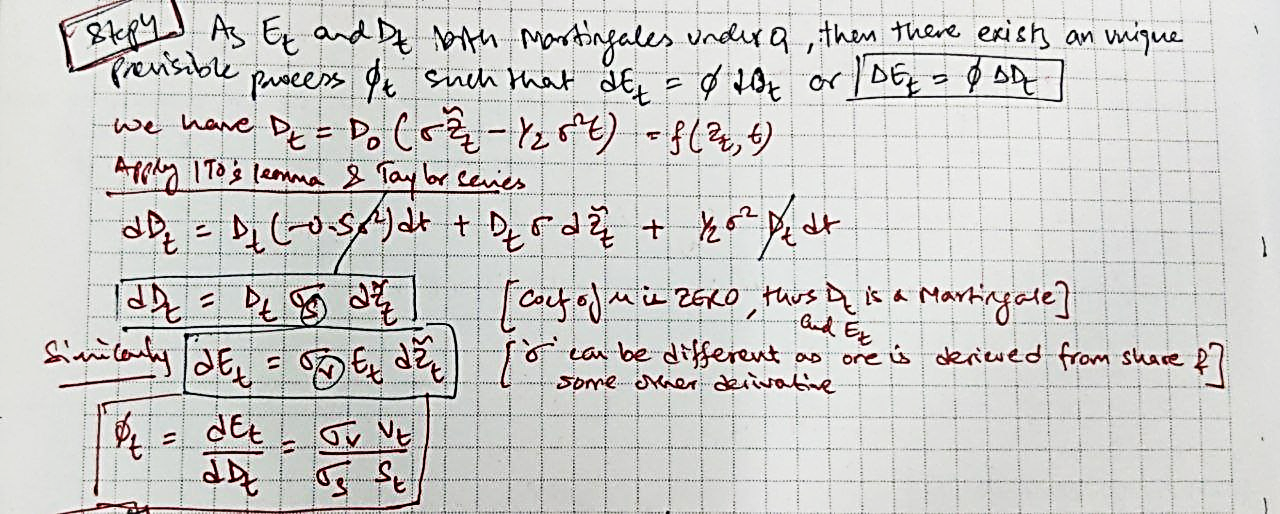 Step4 As Et and Dt both Martingales under Q, then there exists an unique
previsible process ϕt such that dEt = ϕ dDt or ΔEt = ϕ ΔDt
we have Dt = D0 (σ z̃t - 1/2 σ²t) = f(zt, t)
Apply ITO's lemma & Taylor series
dDt = Dt (-0.5σ²)dt + Dt σ dz̃t + 1/2 σ² Dt dt
dDt = Dt σs dz̃t [coef of μ is ZERO, thus Dt is a Martingale]
and Et
Similarly dEt = σv Et dz̃t ['σ' can be different as one is derived from share &]
some other derivative
ϕt = dEt/dDt = σv Vt/σs St